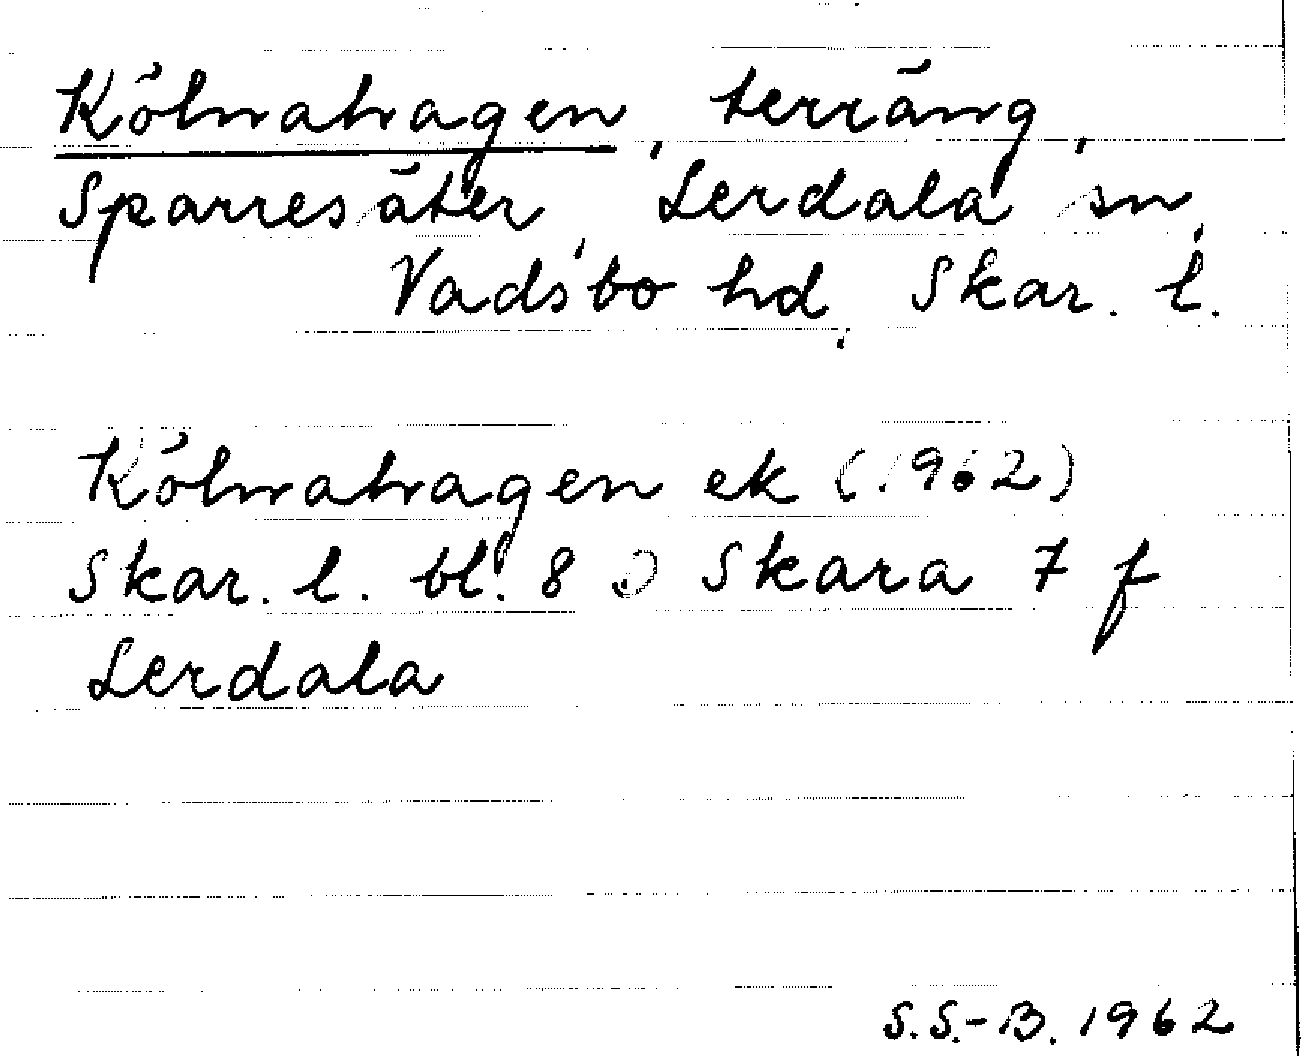 Kölnahagen, terräng,
Sparresäter, Lerdala sn,
Vadsbo hd, Skar. l.
Kölnahagen ek (1962)
Skar. l. bl. 8 Skara 7 f
Lerdala
S.S.-B. 1962